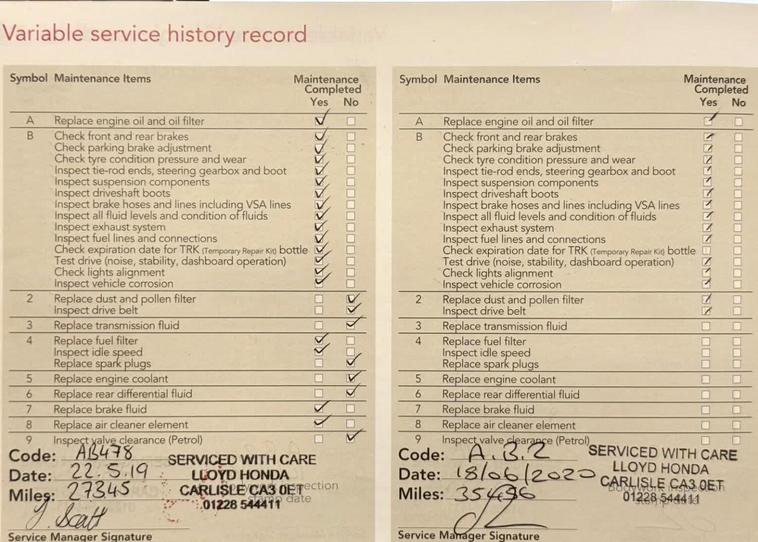 Variable service history record
Symbol Maintenance Items Maintenance Completed Yes No
A Replace engine oil and oil filter
B Check front and rear brakes
Check parking brake adjustment
Check tyre condition pressure and wear
Inspect tie-rod ends, steering gearbox and boot
Inspect suspension components
Inspect driveshaft boots
Inspect brake hoses and lines including VSA lines
Inspect all fluid levels and condition of fluids
Inspect exhaust system
Inspect fuel lines and connections
Check expiration date for TRK (Temporary Repair Kit) bottle
Test drive (noise, stability, dashboard operation)
Check lights alignment
Inspect vehicle corrosion
2 Replace dust and pollen filter
Inspect drive belt
3 Replace transmission fluid
4 Replace fuel filter
Inspect idle speed
Replace spark plugs
5 Replace engine coolant
6 Replace rear differential fluid
7 Replace brake fluid
8 Replace air cleaner element
9 Inspect valve clearance (Petrol)
Code: AB478
Date: 22.5.19
Miles: 27345
SERVICED WITH CARE
LLOYD HONDA
CARLISLE CA3 0ET
01228 544411
J. Scott
Service Manager Signature
Symbol Maintenance Items Maintenance Completed Yes No
A Replace engine oil and oil filter
B Check front and rear brakes
Check parking brake adjustment
Check tyre condition pressure and wear
Inspect tie-rod ends, steering gearbox and boot
Inspect suspension components
Inspect driveshaft boots
Inspect brake hoses and lines including VSA lines
Inspect all fluid levels and condition of fluids
Inspect exhaust system
Inspect fuel lines and connections
Check expiration date for TRK (Temporary Repair Kit) bottle
Test drive (noise, stability, dashboard operation)
Check lights alignment
Inspect vehicle corrosion
2 Replace dust and pollen filter
Inspect drive belt
3 Replace transmission fluid
4 Replace fuel filter
Inspect idle speed
Replace spark plugs
5 Replace engine coolant
6 Replace rear differential fluid
7 Replace brake fluid
8 Replace air cleaner element
9 Inspect valve clearance (Petrol)
Code: A.B.2
Date: 18/06/2020
Miles: 35496
SERVICED WITH CARE
LLOYD HONDA
CARLISLE CA3 0ET
Bodywork Inspection
01228 544411
stamp date
Service Manager Signature